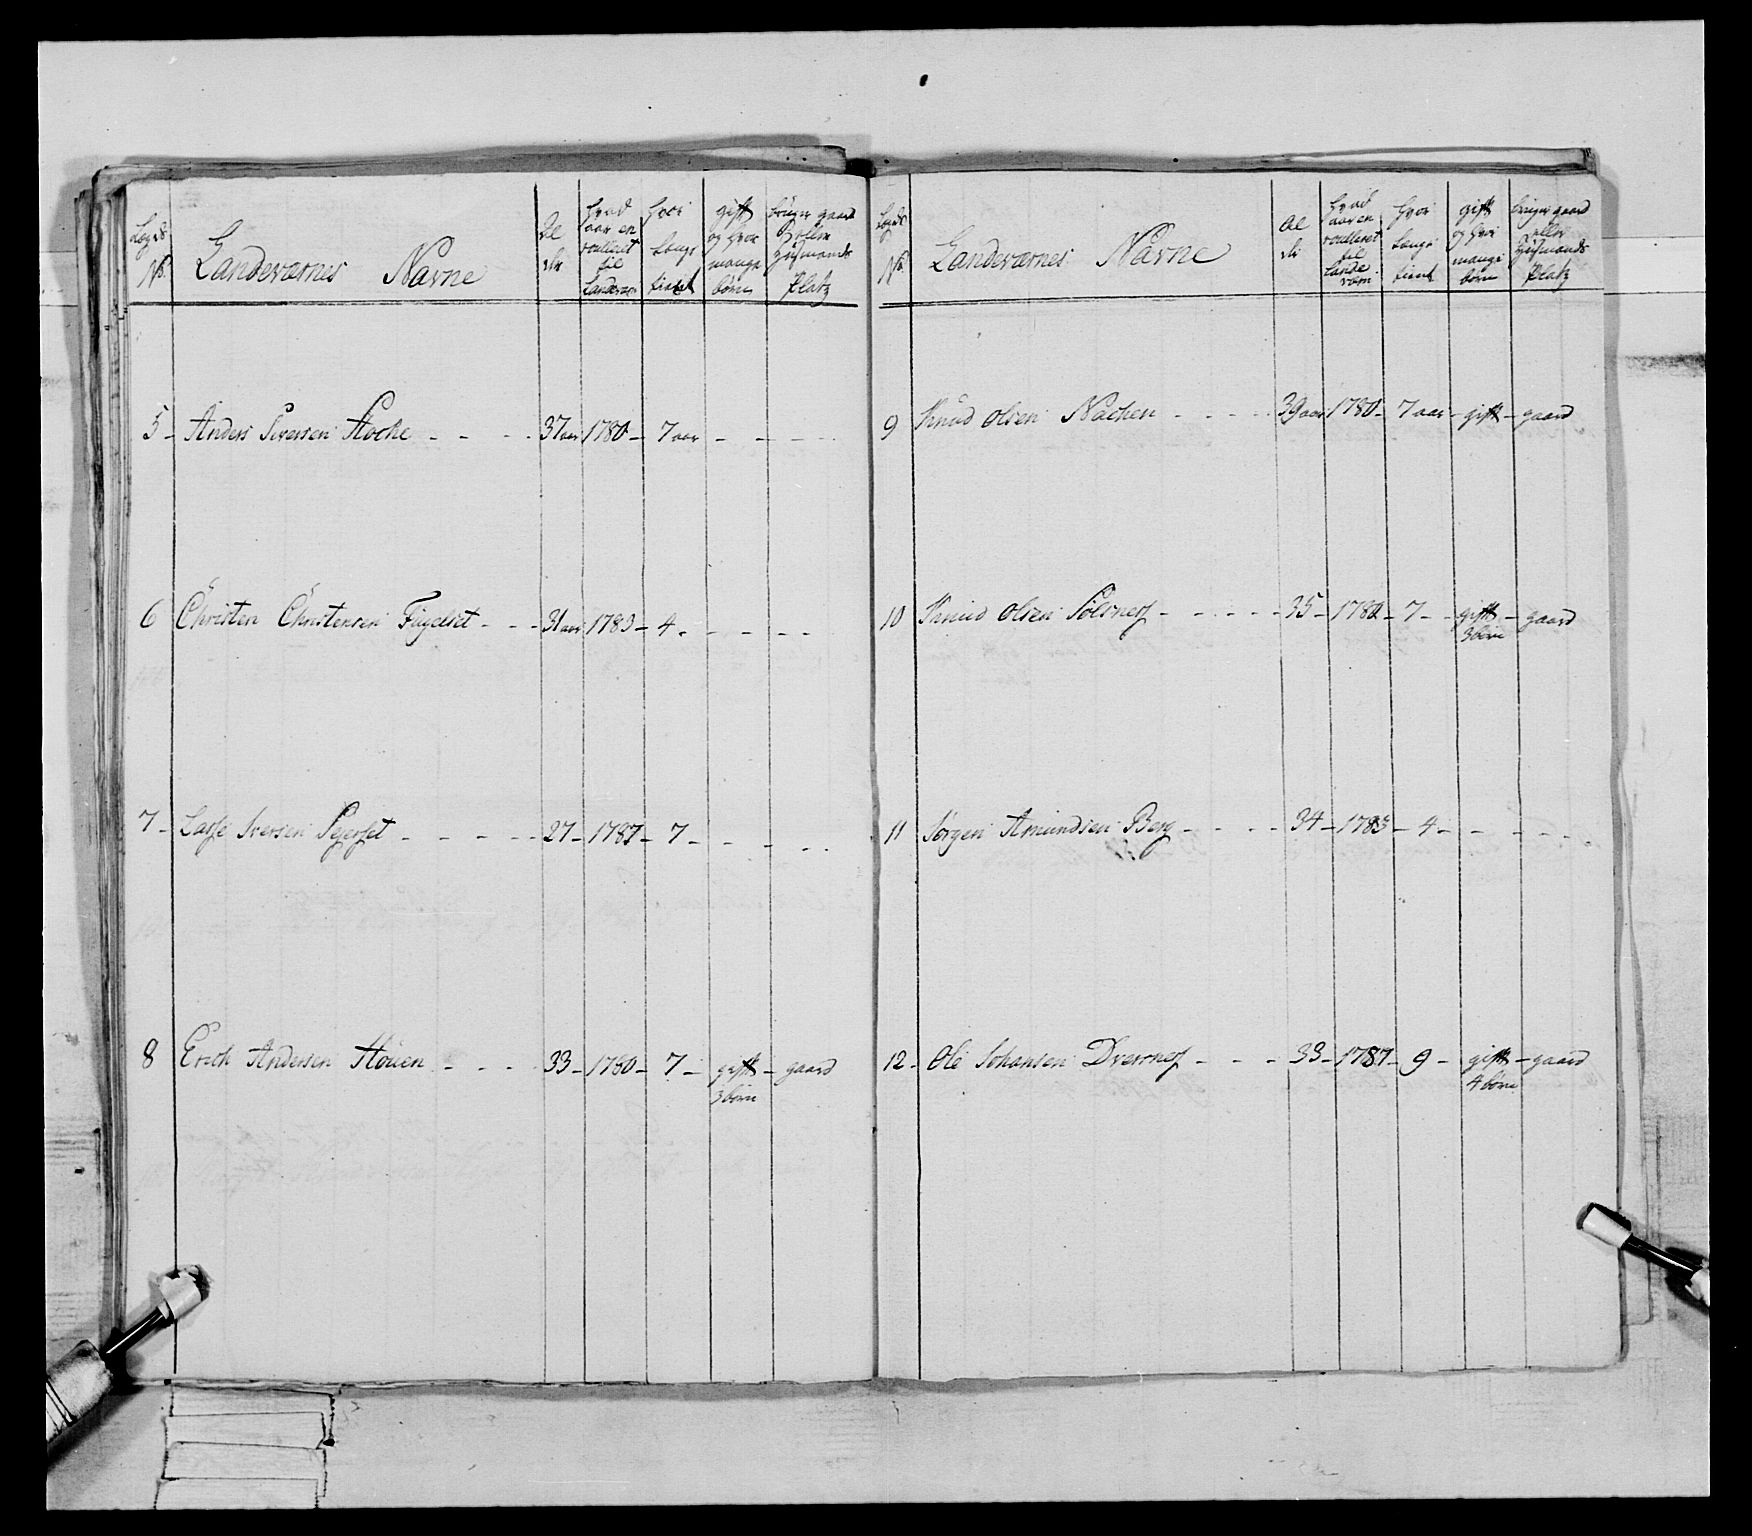 Lægds No. Landeværnes Navne Alder hvad aar en roulleret til Landevær hvor længe tient gift og hvor mange børn bruger gaard eller Huusmands Platz
5 - Anders Iversen Hoche - - - 37 aar 1780 - 7 aar - - - -
6 Christen Christensen Fugelset - - - 31 aar 1783 - 4 - - - -
7 - Lasse Iversen Sejerset - - - - - 27 - 1787 - 7 - - - -
8 Erich Andersen Houen - - - - 33 - 1780 - 7 - gift - gaard
3 børn
Lægds No. Landeværnes Navne Alder hvad aar en roulleret til Landeværn hvor længe tient gift og hvor mange børn bruger gaard eller Huusmands Platz
9 Knud Olsen Nachen - - - - - 39 aar 1780 - 7 aar - gift - gaard
10 Knud Olsen Sølsnes - - - - - 35 - 1780 - 7 - - gift - gaard
3 børn
11 Jørgen Amundsen Berg - - - - 34 - 1783 - 4 - - - - -
12 - Ole Johansen Dversnes - - - 33 - 1787 - 9 - gift - gaard
4 børn